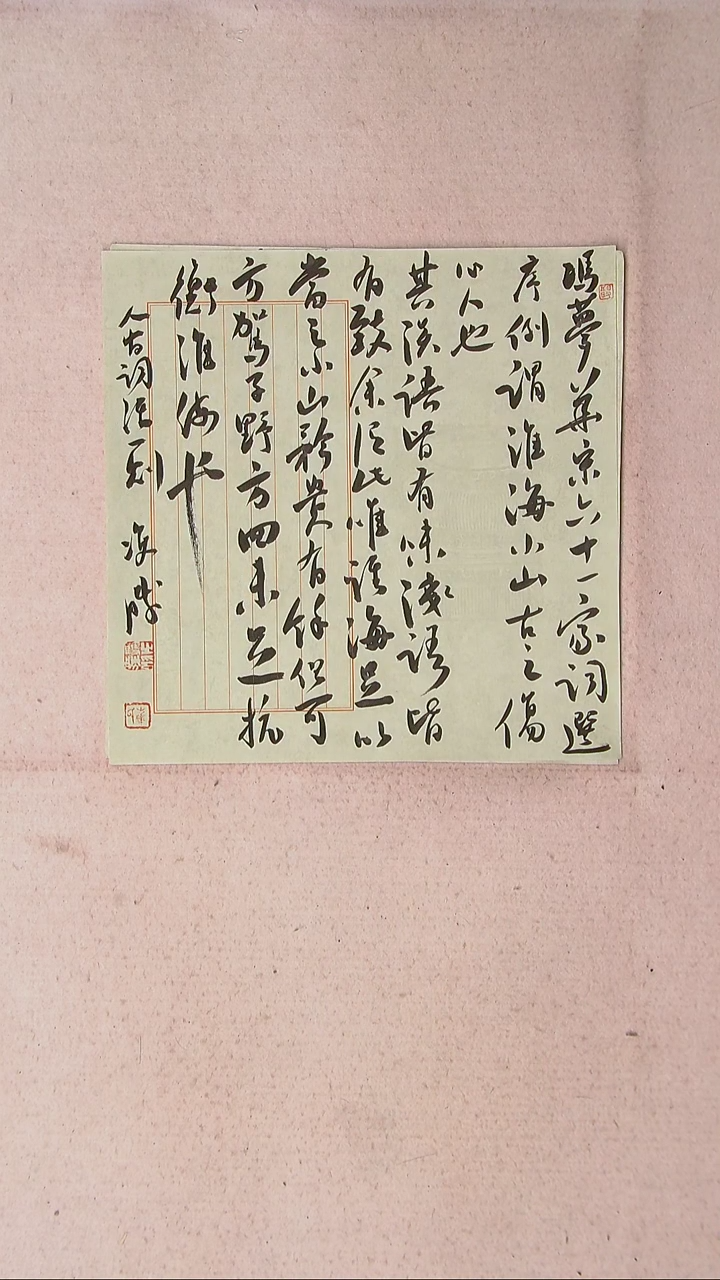 馮夢華宋六十一家詞選
序例謂淮海小山古之傷
心人也
其淡語皆有味淺語皆
有致余謂此唯淮海足以
當之小山矜貴有餘但可
方駕子野方回未足抗
衡淮海也
人间詞話一則